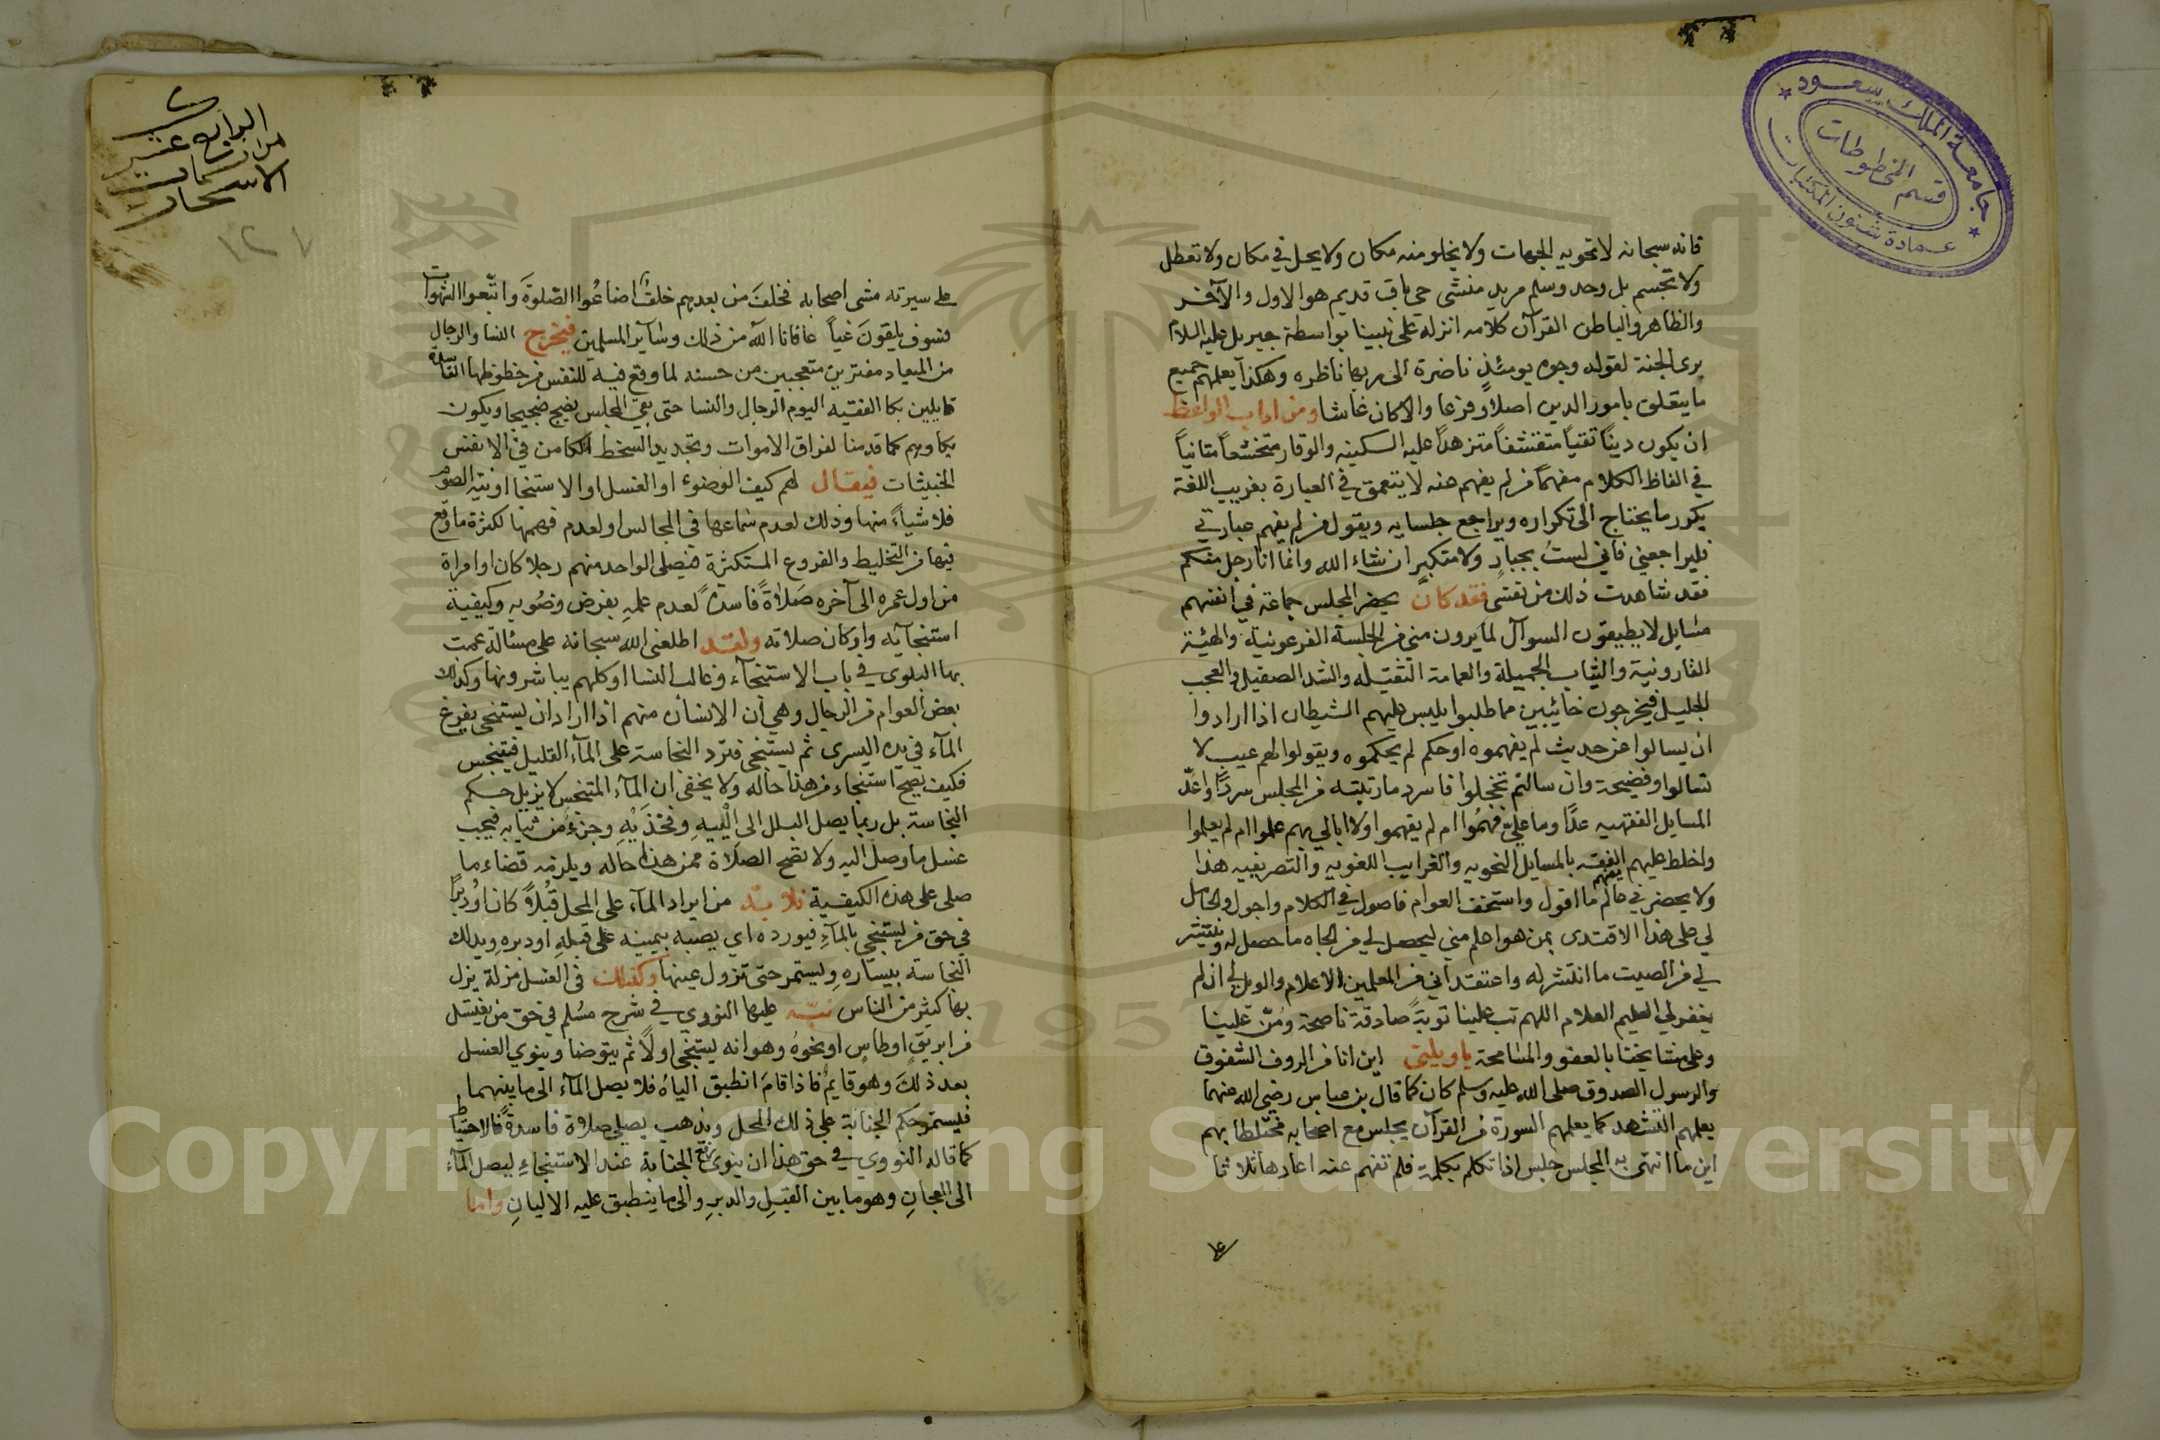 جامعة الملك سعود
قسم المخطوطات
عمادة شئون المكتبات
فانه سبحانه لا تحويه الجهات ولا يخلو منه مكان ولا يحل في مكان ولا تعطل
ولا تجسم بل وحد وسلم مريد منشى حي باق قديم هو الاول والآخر
والظاهر والباطن القرآن كلامه انزله على نبينا بواسطة جبريل عليه السلام
يرى الجنة لقوله وجوه يومئذٍ ناضرة الى ربها ناظره وهكذا يعلمهم جميع
ما يتعلق بامور الدين اصلا وفرعا والا كان غاشا ومن اداب الواعظ
ان يكون ديناً تقياً متقشفاً متزهداً عليه السكينه والوقار متخشعاً متانياً
في الفاظ الكلام مفهماً من لم يفهم عنه لا يتعمق في العبارة بغريب اللغة
يكرر ما يحتاج الى تكراره ويراجع جلسايه ويقول من لم يفهم عبارتي
فليراجعني فاني لستُ بجبارٍ ولا متكبرٍ ان شاء الله وانما انا رجل منكم
فقد شاهدت ذلك من نفسي فقد كان يحضر المجلس جماعة في انفسهم
مسايل لا يطيقون السوآل لما يرون مني من الجلسة الفرعونية والهيئة
القارونية والثياب الجميلة والعمامة الثقيله والشد الصقيل والعجب
الجليل فيخرجون خائبين مما طلبوا يلبس عليهم الشيطان اذا ارادوا
ان يسالوا عن حديث لم يفهموه او حكم لم يحكموه ويقولوا لهم عيب لا
تسالوا وفضيحة وان سالتم تخجلوا فاسرد ما رتبته من المجلس سرداً واعدّ
المسايل الفقهيه عدًا وما علي فهمُوا ام لم يفهموا ولا ابالي بهم علموا ام لم يعلموا
واخلط عليهم الفقه بالمسايل النحويه والغرايب اللغويه والتصريفيه هذا
ولا يحضرني عالم يفهم ما اقول واستخف العوام فاصول في الكلام واجول والحامل
لي على هذا الاقتدى بمن هو اعلم مني ليحصل لي من الجاه ما حصل له وينتشر
لي من الصيت ما انتشر له واعتقد اني من المعلمين الاعلام والويل لي ان لم
يغفر لي العليم العلام اللهم تب علينا توبةً صادقة ناصحة ومُنّ علينا
وعلى مشايخنا بالعفو والمسامحة يا ويلتي اين انا من الروف الشفوق
والرسول الصدوق صلى الله عليه وسلم كان كما قال بن عباس رضي الله عنهما
يعلمهم التشهد كما يعلمهم السورة من القرآن يجلس مع اصحابه مختلطا بهم
اين ما انتهى به المجلس جلس اذا تكلم بكلمة فلم تفهم عنه اعادها ثلاثا
١٤
الرابع عشر
من
الاسحار
١٢٧
على سيرته مشى اصحابه فخلفَ من بعدهم خلفٌ اضاعُوا الصّلوةَ واتّبعوا الشهوات
فسوف يلقونَ غياً عافانا الله من ذلك وساير المسلمين فيخرج النسا والرجال
من الميعاد مفترين متعجبين من حسنه لما وقع فيه للنفس من حظوظها الفاسدة
قايلين بكا الفقيه اليوم الرجال والنسا حتى بقي المجلس يضج ضجيجا ويكون
بكاويهم كما قدمنا لفراق الاموات وتجديد السخط الكامن في الانفس
الخبيثات فيقال لهم كيف الوضوء او الغسل او الاستنجا او نية الصوم
فلا شيأً منها وذلك لعدم سماعها في المجالس او لعدم فهمها لكثرة ما وقع
فيها من التخليط والفروع المستكثرة فيصلى الواحد منهم رجلا كان او امراة
من اول عمره الى آخره صلاةً فاسدةً لعدم علمهِ بفرض وضُويه وكيفية
استنجآيه واركان صلاته ولقد اطلعنى الله سبحانه على مسالة عمت
بها البلوى في باب الاستنجآء وغالب النسا او كلهم يباشرونها وكذلك
بعض العوام من الرجال وهي أن الانسان منهم اذا اراد ان يستنجي يفرغ
المآء في يده اليسرى ثم يستنجي فترد النجاسة على المآء القليل فيتنجس
فكيف يصح استنجاء من هذا حاله ولا يخفى ان المآء المتنجس لا يزيل حكم
النجاسة بل ربما يصل البلل الى الْيَيهِ وفخذَيْهِ وجزءٍ من ثيابه فيجب
غسل ما وصل اليه ولا تصح الصلاة ممن هذا حاله ويلزمه قضاء ما
صلى على هذه الكيفية فلا بدّ من ايراد المآء على المحل قُبُلاً كان او دبرًا
في حق من يستنجي بالمآءِ فيورده اي يصبه بيمينه على قبلهِ او دبرهِ ويدلك
النجاسة بيسارهِ وليستمر حتى تزول عينها وكذلك في الغسل مزلة يزل
بها كثير من الناس نبّه عليها النووي في شرح مسُلم في حق من يغتسل
من ابريقٍ او طاسٍ او نحوهُ وهو انه يستنجي اولاً ثم يتوضا وينوي الغسل
بعد ذلكَ وهو قايمٌ فاذا قامَ انطبق الياهُ فلا يصل المآء الى ما بينهما
فيستمر حكم الجنابة على ذلك المحل ويذهب يصلي صلاة فاسدة فالاحتياط
كما قاله النووي في حق هذا ان ينوي رفع الجنابة عند الاستنجاءِ ليصل المآء
الى العجانِ وهو ما بين القبلِ والدبرِ والى ما ينطبق عليه الاليانِ واما
1957
Copyright © King Saud University